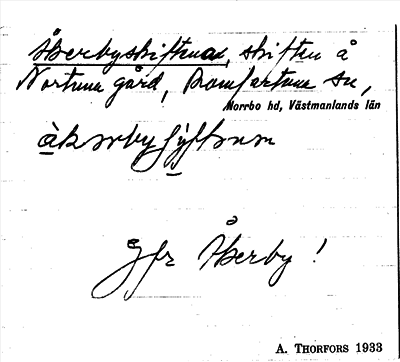 Åkerbyskiftena, skiften å
Nortuna gård, Romfartuna sn,
Norrbo hd, Västmanlands län
Jfr Åkerby!
A. THORFORS 1933